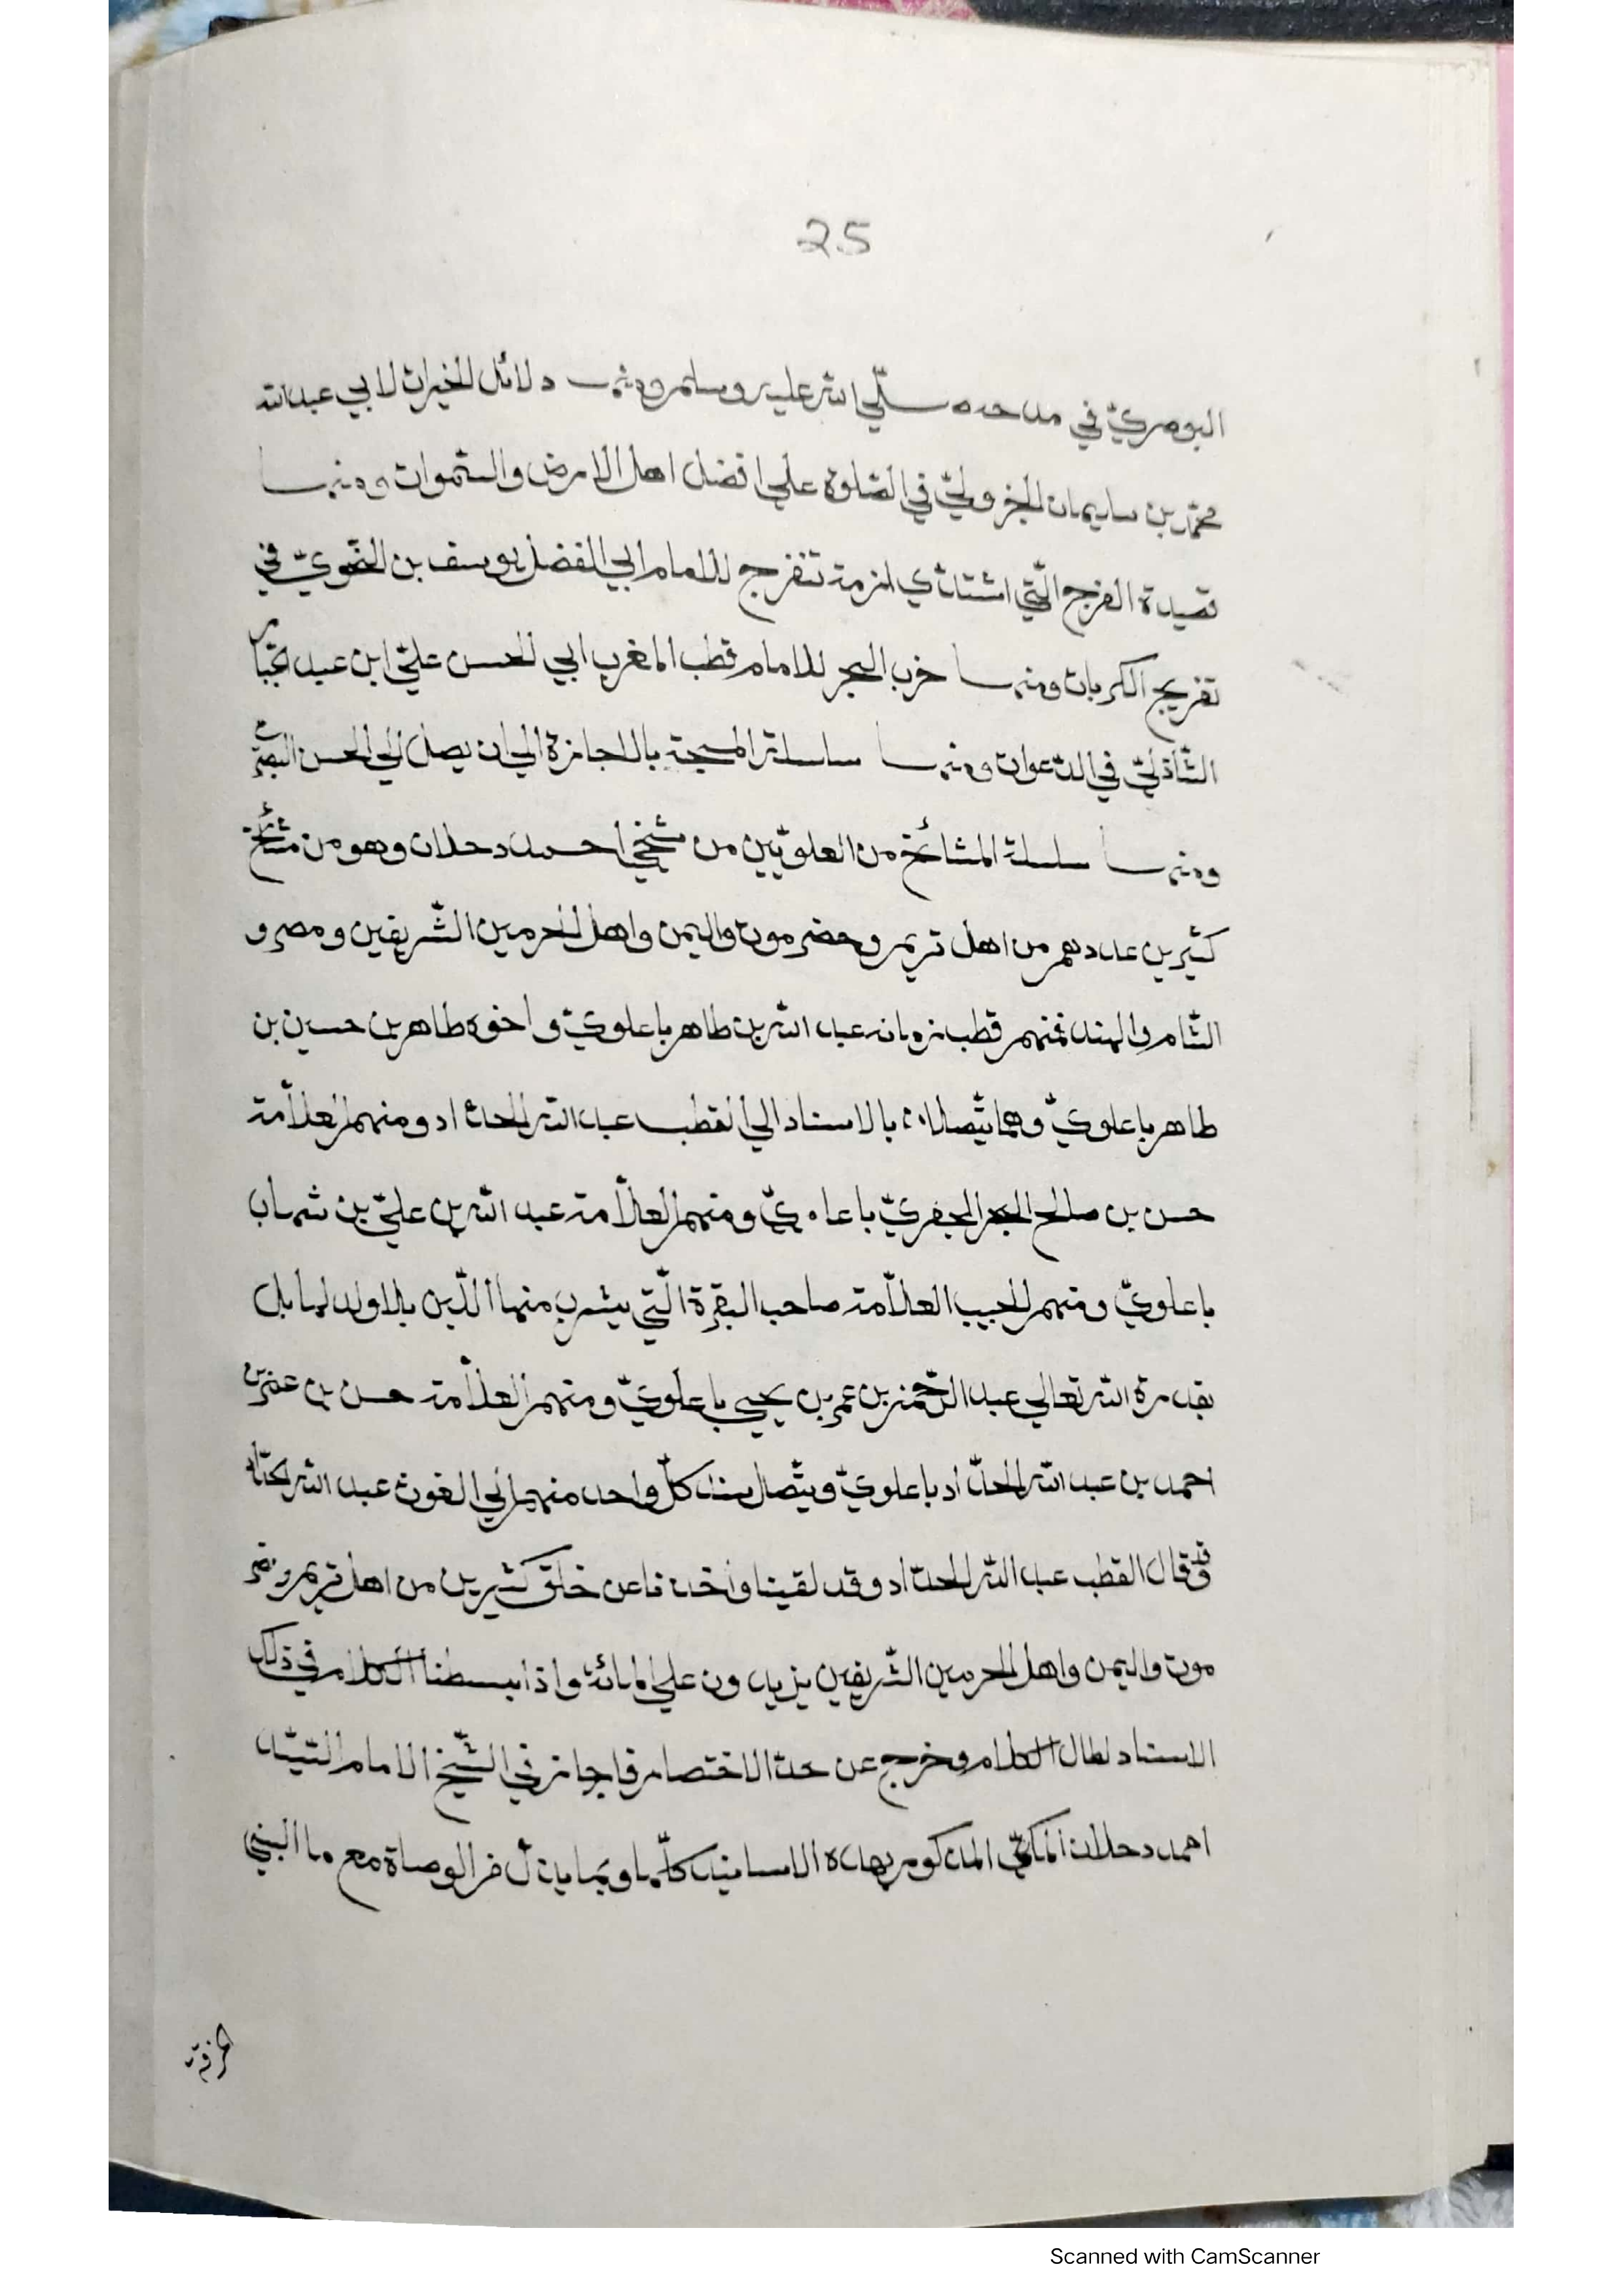 25
البوصريّ في مدحه صلّي الله عليه وسلم ومنها دلائل الخيرات لابي عبد الله
محمّد بن سليمان الجزوليّ في الصّلوة علي افضل اهل الارض والسّموات ومنها
قصيدة الفرج الّتي اشتدّي ازمة تنفرج للامام ابي الفضل يوسف بن النّحويّ في
تفريج الكربات ومنها حزب البحر للامام قطب المغرب ابي الحسن عليّ ابن عبد الجبّار
الشّاذليّ في الدّعوات ومنها سلسلة المسبحة بالاجازة الي ان يصل الي الحسن البصريّ
ومنها سلسلة المشائخ من العلويّين من شيخي احمد دحلان وهو من مشائخ
كثيرين عددهم من اهل تريم وحضرموت واليمن واهل الحرمين الشّريفين ومصر و
الشّام والهند فمنهم قطب زمانه عبد الله بن طاهر باعلويّ واخوه طاهر بن حسين بن
طاهر باعلويّ وهما يتّصلان بالاسناد الي القطب عبد الله الحدّاد ومنهم العلّامة
حسن بن صالح البحر الجفريّ باعلويّ ومنهم العلّامة عبد الله بن عليّ بن شهاب
باعلويّ ومنهم الحبيب العلّامة صاحب البقرة الّتي يشرب منها الّذين بلا ولد لها بل
بقدرة الله تعالي عبد الرّحمن بن عمر بن يحيي باعلويّ ومنهم العلّامة حسن بن
احمد بن عبد الله الحدّاد باعلويّ ويتّصل سند كلّ واحد منهم الي الغوث عبد الله الحدّاد
وقد قال القطب عبد الله الحدّاد وقد لقينا واخذنا عن خلق كثيرين من اهل تريم وحضر
موت واليمن واهل الحرمين الشّريفين يزيدون علي المائة واذا بسطنا الكلام في ذلك
الاسناد لطال الكلام وخرج عن حدّ الاختصار فاجازني الشّيخ الامام السّيّد
احمد دحلان المكّيّ المذكور بهذه الاسانيد كلّها وبما الوصاة مع ما البسني
الخرقة
Scanned with CamScanner